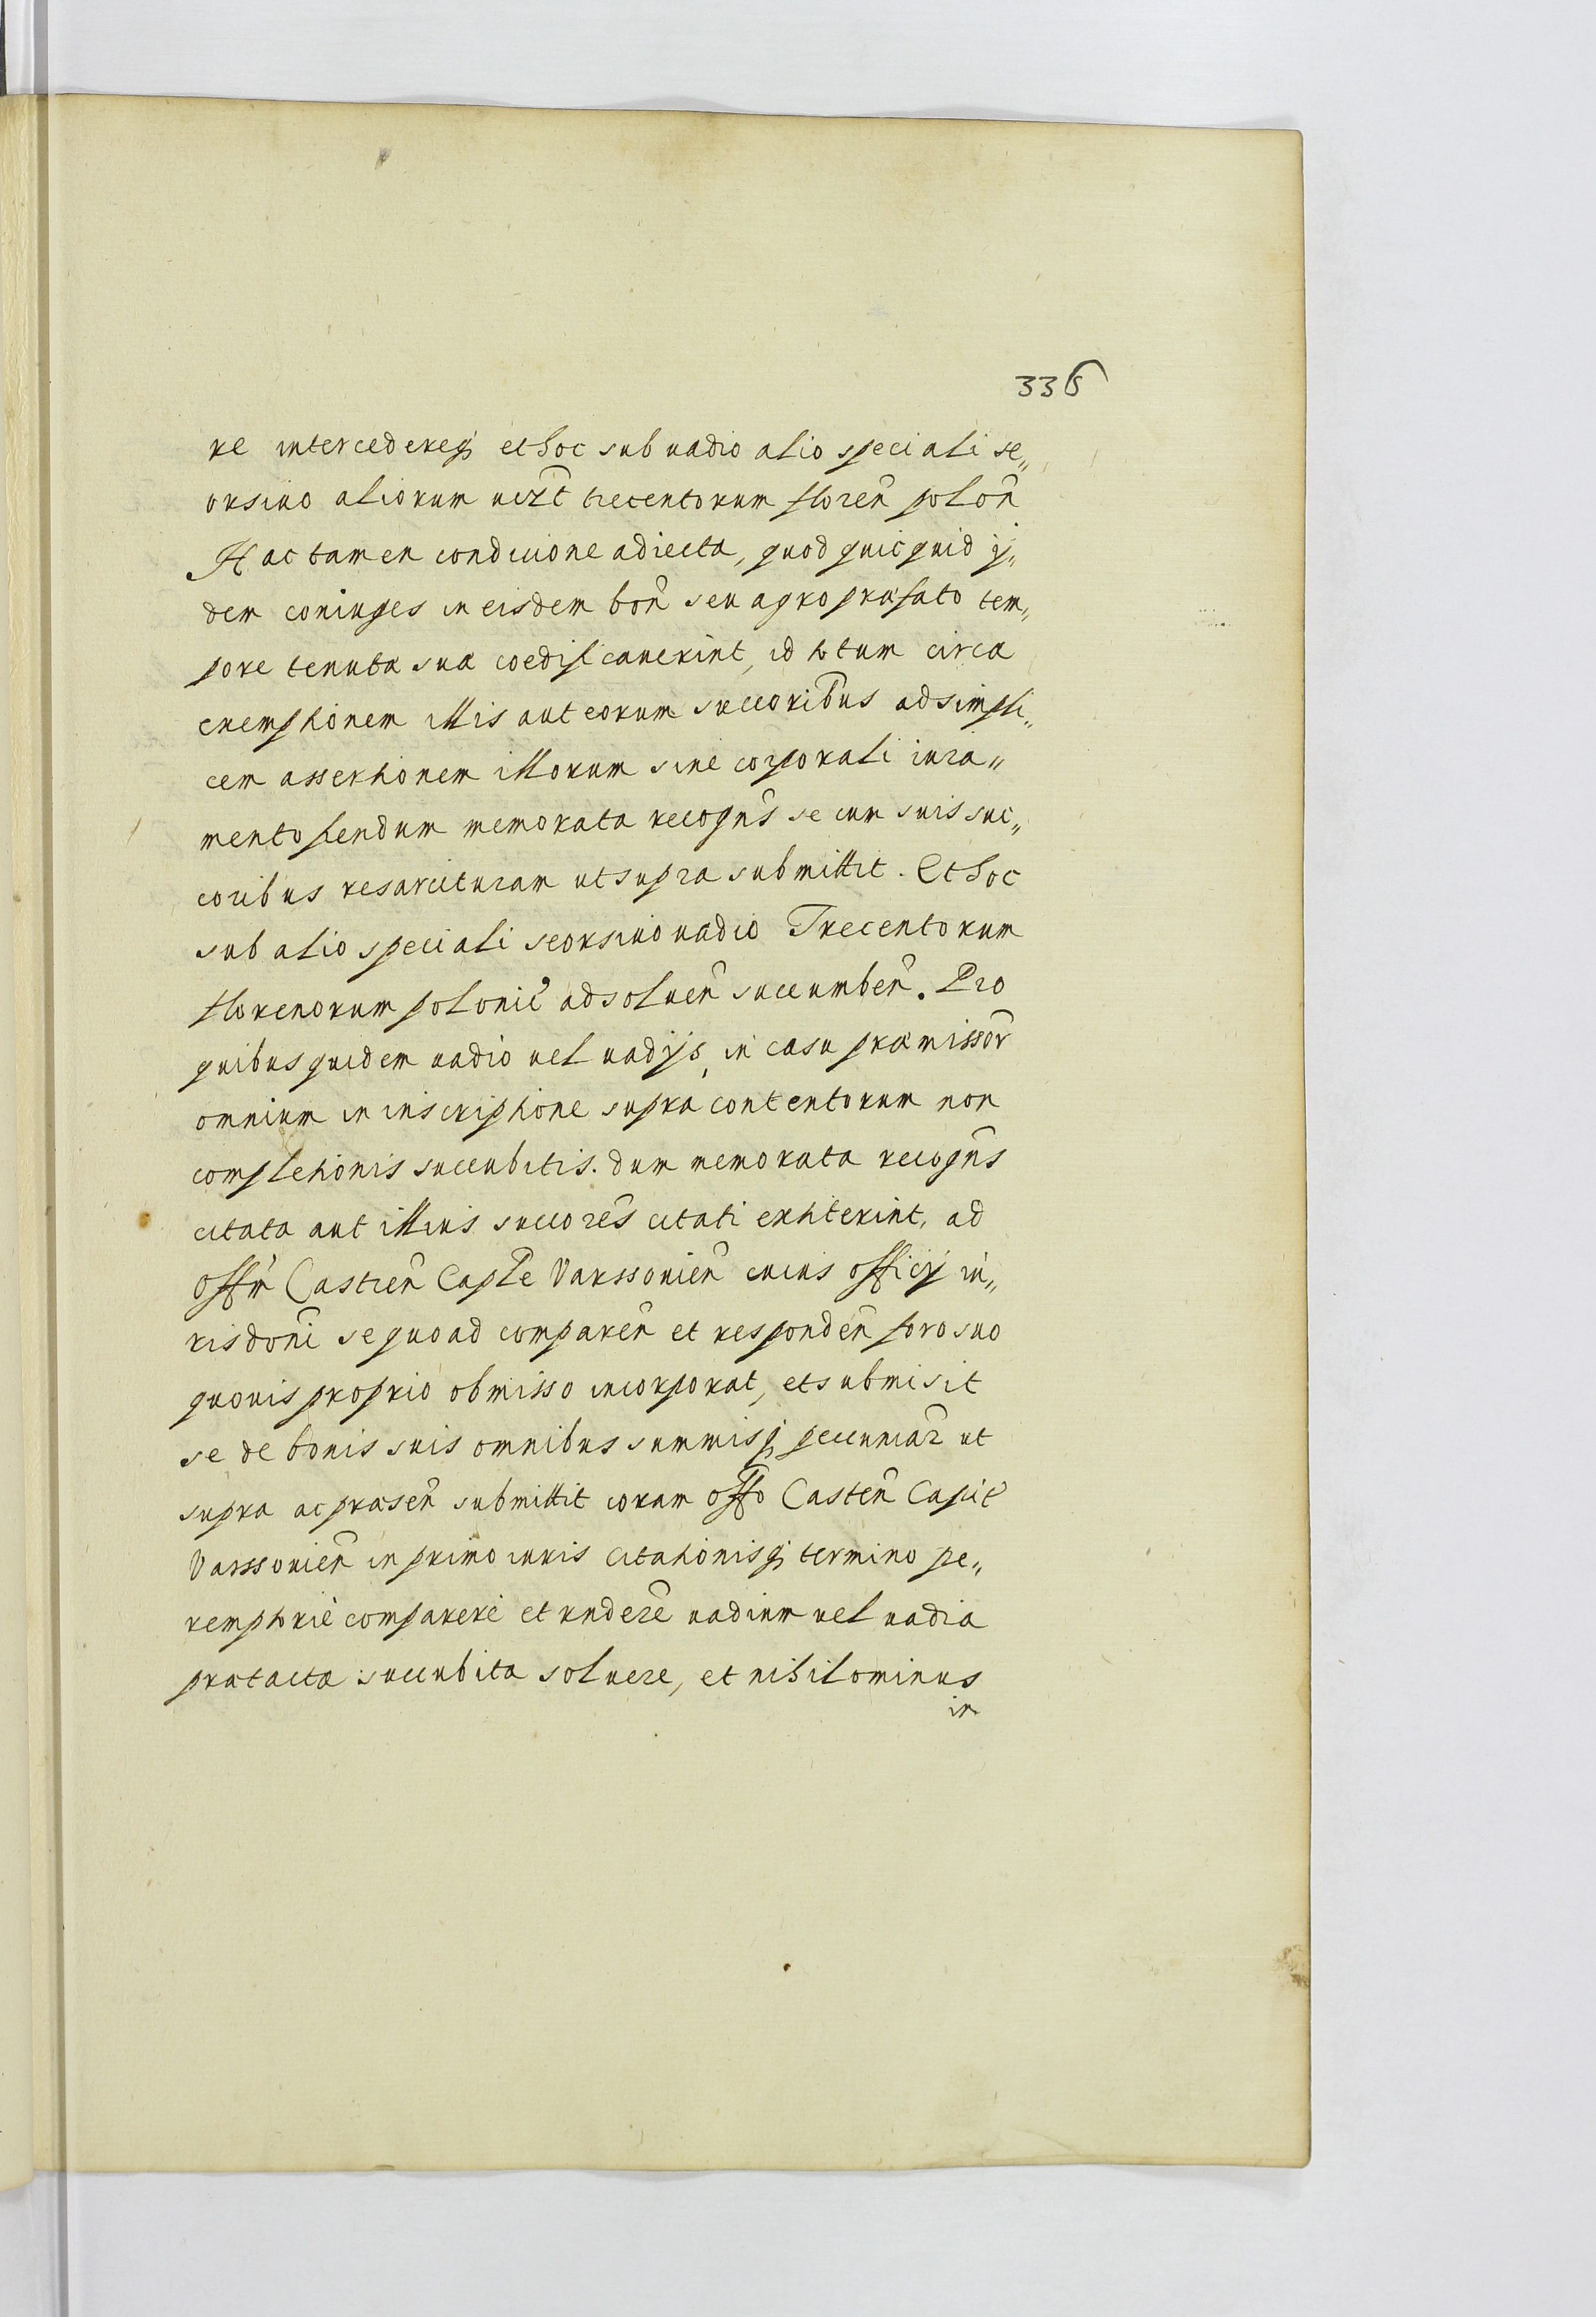 336
re intercedereq; et hoc sub vadio alio speciali se„
orsivo aliorum vizt trecentorum floren polon
Hac tamen condicione adiecta, quod quicquid ij„
dem coniuges in eisdem bon seu agro præfato tem„
pore tenutæ suæ coedificaverint, id totum circa
exemptionem illis aut eorum succoribus ad simpli„
cem assertionem illorum sine corporali iura„
mento fiendum memorata recogns se cum suis suc„
coribus resarcituram ut supra submittit. Et hoc
sub alio speciali seorsivo vadio Trecentorum
florenorum polonic ad soluen succumben. Pro
quibus quidem vadio vel vadijs, in casu præmissor
omnium in inscriptione supra contentorum non
completionis succubitis. dum memorata recogns
citata aut illius succores citati extiterint, ad
offm Castren Captle Varssovien cuius officij iu„
risdoni se quoad comparen et responden foro suo
quovis proprio obmisso incorporat, et submisit
se de bonis suis omnibus summisq; pecuniar ut
supra ac præsen submittit coram offo Casten Capit
Varssovien in primo iuris citationisq; termino pe„
remptorie comparere et rndere vadium vel vadia
prætacta succubita soluere, et nihilominus
in